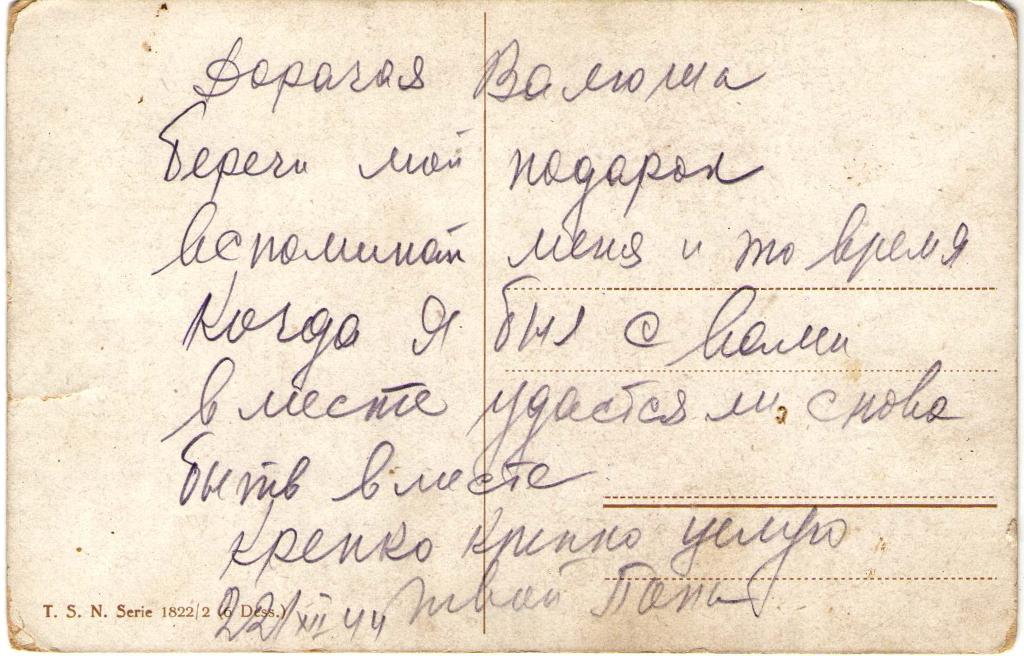 Дорагая Валюша
береги мой подарок
вспоминай меня и то время
Когда Я был с вами
вместе удастся ли снова
быть вместе
крепко крепко целую
22/XII 44 твой Папа
T. S. N. Serie 1822/2 (6 Dess.)